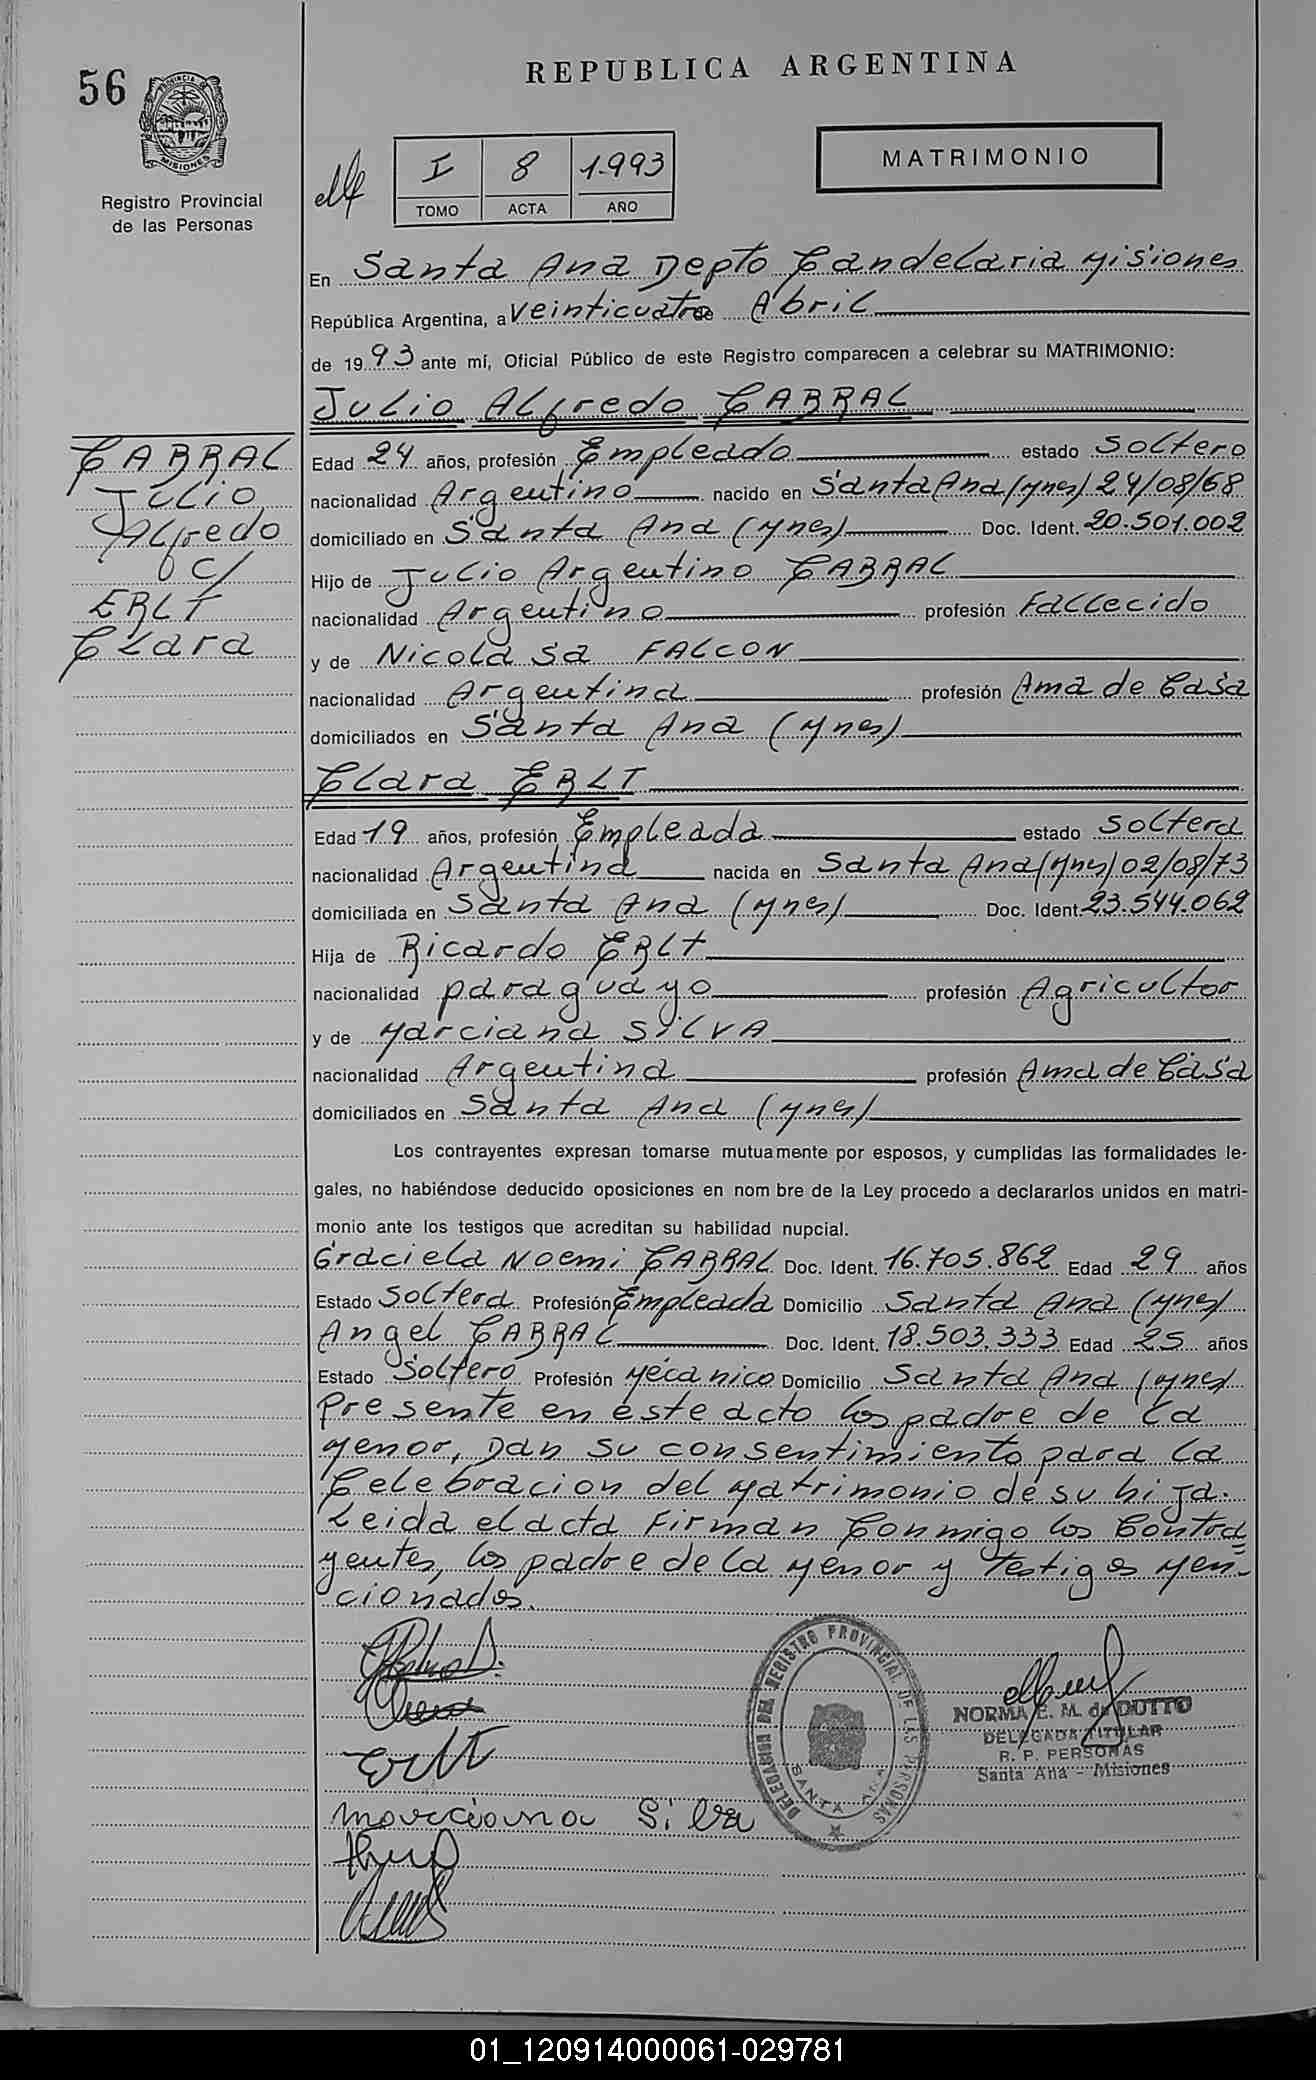 56
REPUBLICA ARGENTINA
PROVINCIA DE MISIONES
Registro Provincial
de las Personas
I 8 1.993
TOMO ACTA AÑO
MATRIMONIO
En Santa Ana Depto Candelaria Misiones
República Argentina, a veinticuatro de Abril
de 1993 ante mí, Oficial Público de este Registro comparecen a celebrar su MATRIMONIO:
Julio Alfredo CABRAL
CABRAL
Julio
Alfredo
c/
ERLT
Clara
Edad 24 años, profesión Empleado estado Soltero
nacionalidad Argentino nacido en Santa Ana (Mnes) 24/08/68
domiciliado en Santa Ana (Mnes) Doc. Ident. 20.501.002
Hijo de Julio Argentino CABRAL
nacionalidad Argentino profesión Fallecido
y de Nicolasa FALCON
nacionalidad Argentina profesión Ama de Casa
domiciliados en Santa Ana (Mnes)
Clara ERLT
Edad 19 años, profesión Empleada estado Soltera
nacionalidad Argentina nacida en Santa Ana (Mnes) 02/08/73
domiciliada en Santa Ana (Mnes) Doc. Ident. 23.544.062
Hija de Ricardo ERLt
nacionalidad paraguayo profesión Agricultor
y de Marciana SILVA
nacionalidad Argentina profesión Ama de Casa
domiciliados en Santa Ana (Mnes)
Los contrayentes expresan tomarse mutuamente por esposos, y cumplidas las formalidades le-
gales, no habiéndose deducido oposiciones en nom bre de la Ley procedo a declararlos unidos en matri-
monio ante los testigos que acreditan su habilidad nupcial.
Graciela Noemi CABRAL Doc. Ident. 16.705.862 Edad 29 años
Estado Soltera Profesión Empleada Domicilio Santa Ana (Mnes)
Angel CABRAL Doc. Ident. 18.503.333 Edad 25 años
Estado Soltero Profesión Mécanico Domicilio Santa Ana (Mnes)
Presente en este acto los padre de la
Menor, Dan su consentimiento para la
Celebracion del Matrimonio de su hija.
Leida el acta Firman Conmigo los Contra
yentes, los padre de la Menor y Testigos Men-
cionados.
Erlt
marciana Silva
DELEGACION DEL REGISTRO PROVINCIAL DE LAS PERSONAS
SANTA ANA
NORMA E. M. de DUTTO
DELEGADA TITULAR
R. P. PERSONAS
Santa Ana - Misiones
01_120914000061-029781